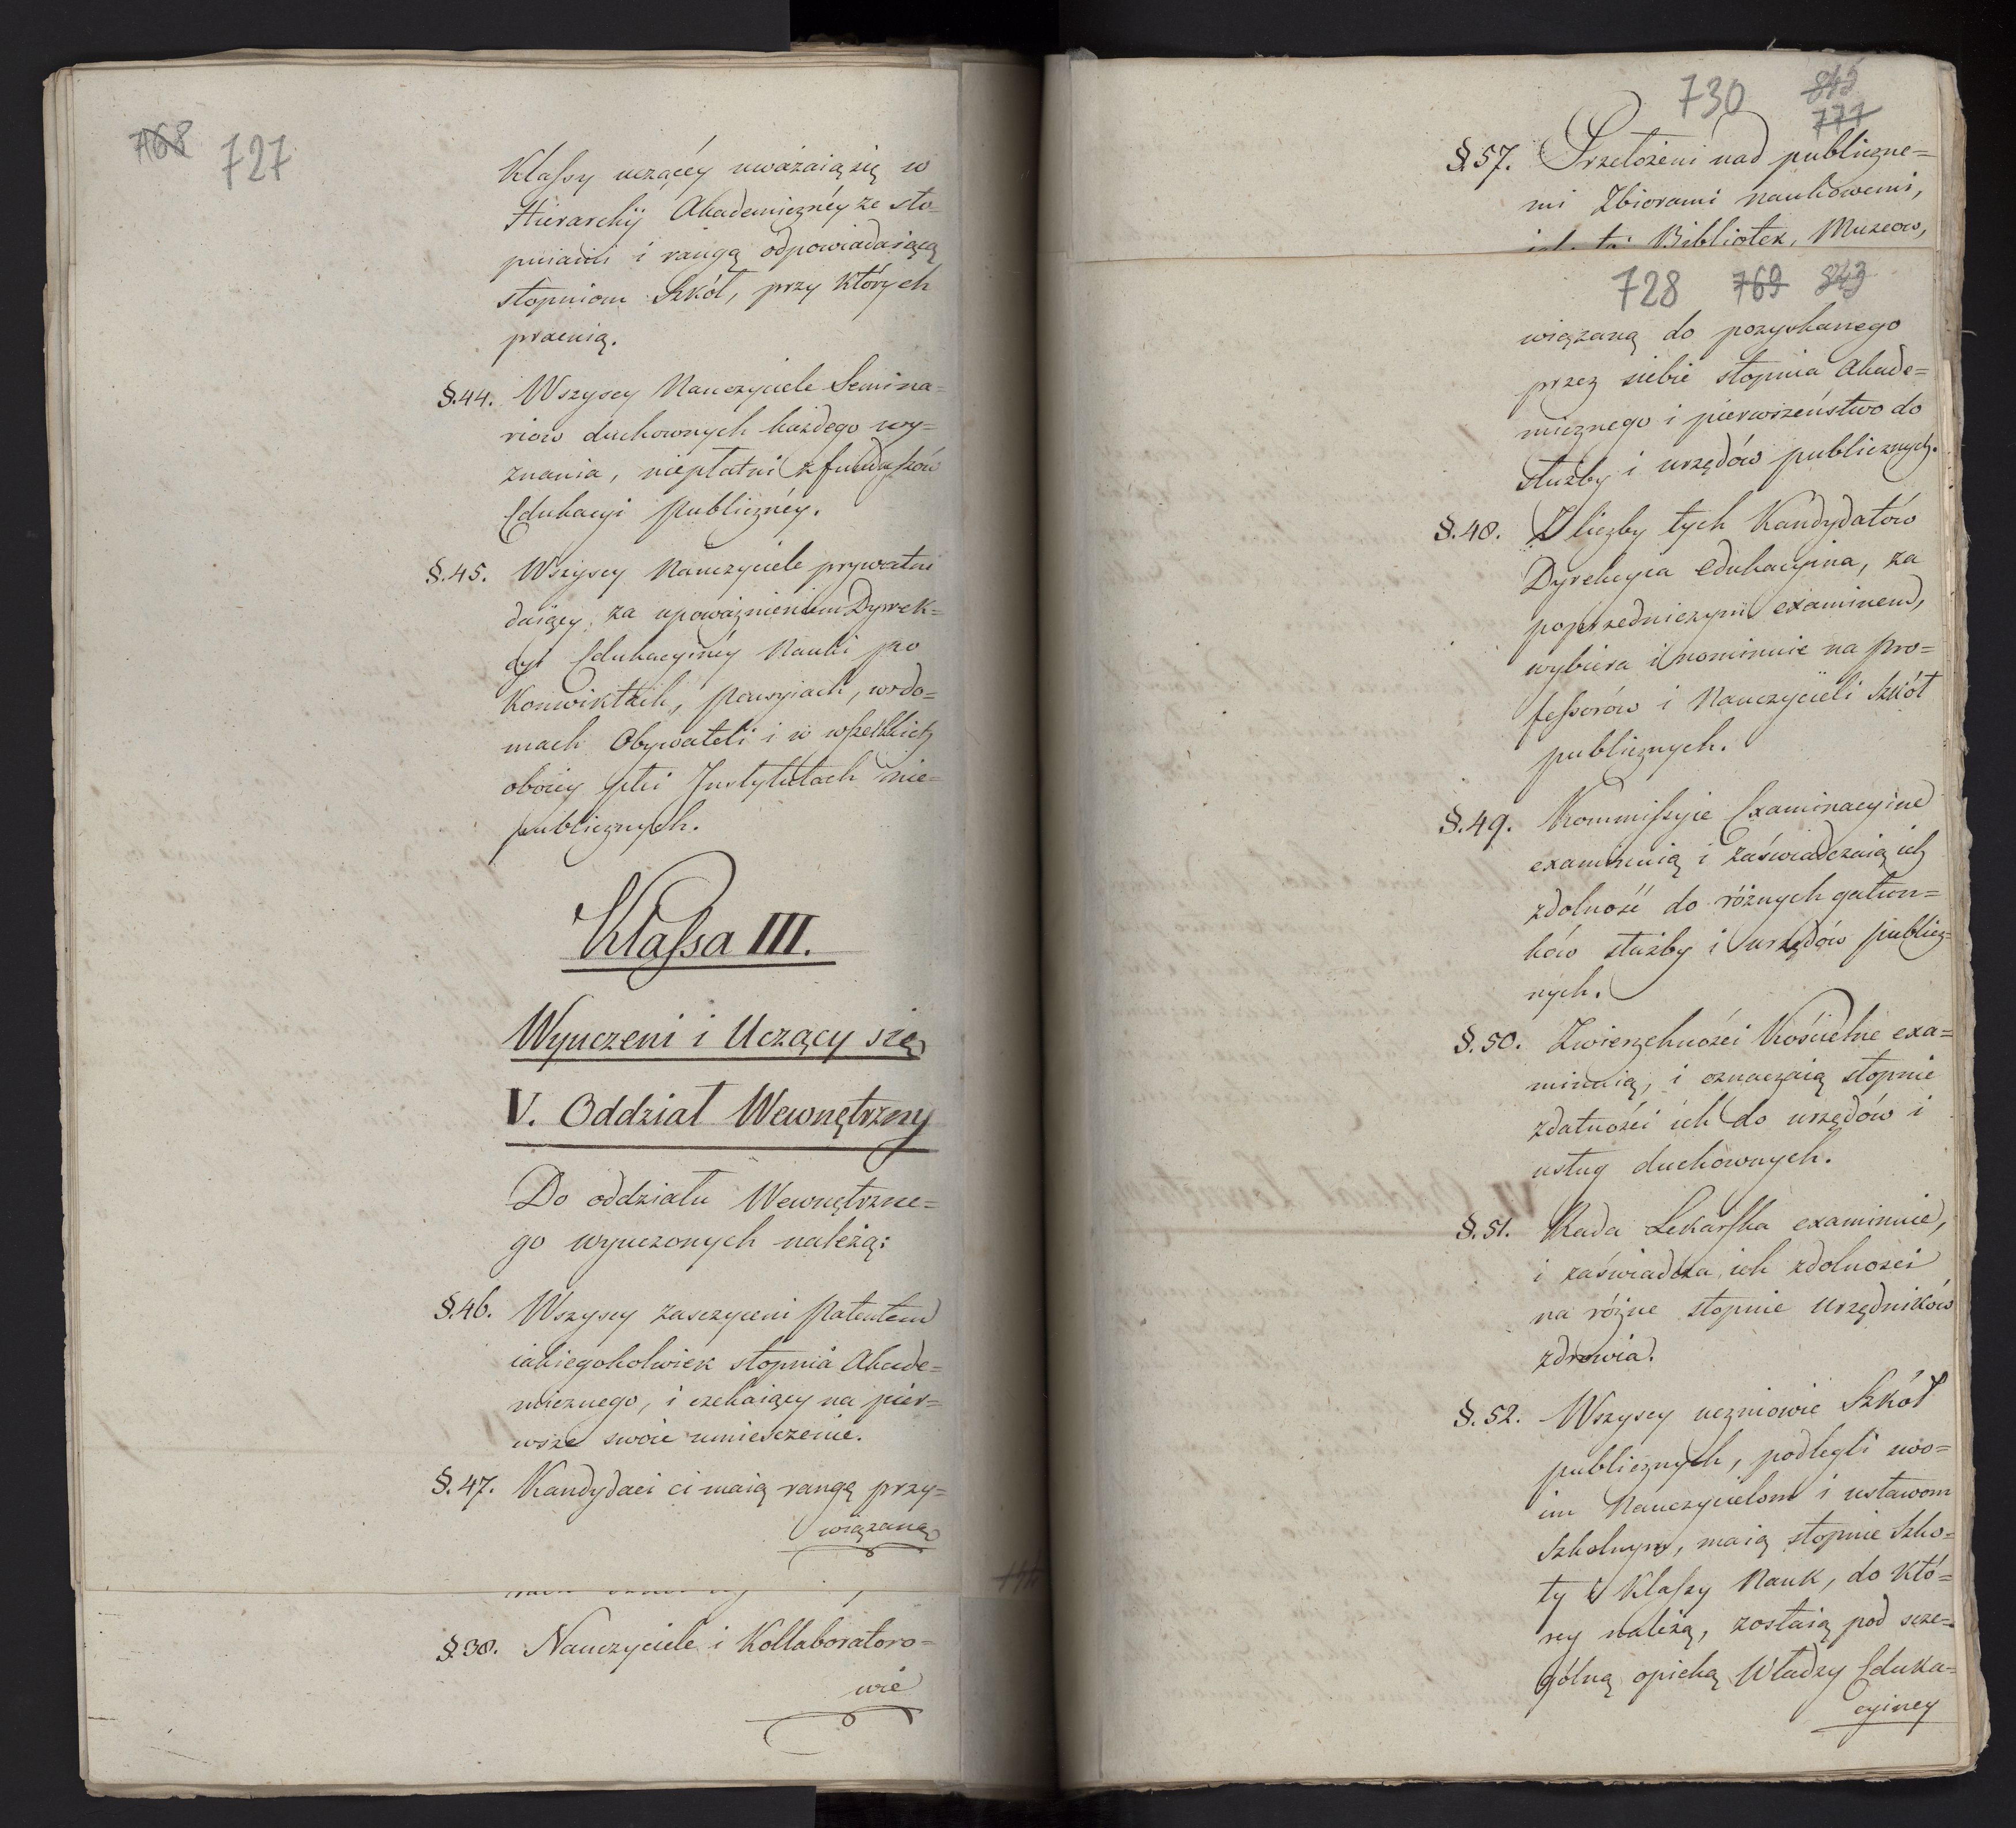 768 727
Klassy uczącéy uważaią się w
Hierarchij Akademicznéy ze sto-
pniami i rangą odpowiadaiącą
stopniom Szkół, przy których
pracuią.
§.44. Wszyscy Nauczyciele Semina=
riow duchownych każdego wy=
znania, niepłatni z funduszów
Edukacyi publicznéy.
§.45. Wszyscy Nauczyciele prywatni
daiący za upoważnieniem Dyrek=
cyi Edukacyinéy Nauki po
Konwiktach, pensyiach, w do=
mach Obywateli i w wszelkich
oboiey płci Instytutach nie=
publicznych.
Klassa III.
Wyuczeni i Uczący się
V. Oddział Wewnętrzny
Do oddziału Wewnętrzne=
go wyuczonych należą:
§.46. Wszyscy zaszczyceni Patentem
iakiegokolwiek stopnia Akade=
micznego, i czekaiący na pier=
wsze swoie umiesczenie.
§.47. Kandydaci ci maią rangę przy=
wiązaną
§.38. Nauczyciele i Kollaboratoro=
wie
730 843
777
§.57. Przełożeni nad publiczne=
mi Zbiorami naukowemi,
Bibliotek, Muzeow,
728 769 843
wiązaną do pozyskanego
przez siebie stopnia Akade=
micznego i pierwszeństwo do
służby i urzędów publicznych.
§.48. Z liczby tych Kandydatów
Dyrekcyia Edukacyina, za
poprzedniczym examinem,
wybiera i nominuie na Pro=
fessorów i Nauczycieli Szkół
publicznych.
§.49. Kommissyie Examinacyine
examinuią i zaświadczaią ich
zdolność do różnych gatun=
ków służby i urzędów publicz=
nych.
§.50. Zwierzchności Kościelne exa=
minuią, i oznaczaią stopnie
zdatności ich do urzędów i
usług duchownych.
§.51. Rada Lekarska examinuie,
i zaświadcza ich zdolności
na różne stopnie Urzędników
zdrowia.
§.52. Wszyscy uczniowie Szkół
publicznych, podlegli swo=
im Nauczycielom i ustawom
Szkolnym, maią stopnie Szko=
ły i Klassy Nauk, do któ=
rey należą, zostaią pod scze=
gólną opieką Władzy Eduka=
cyiney